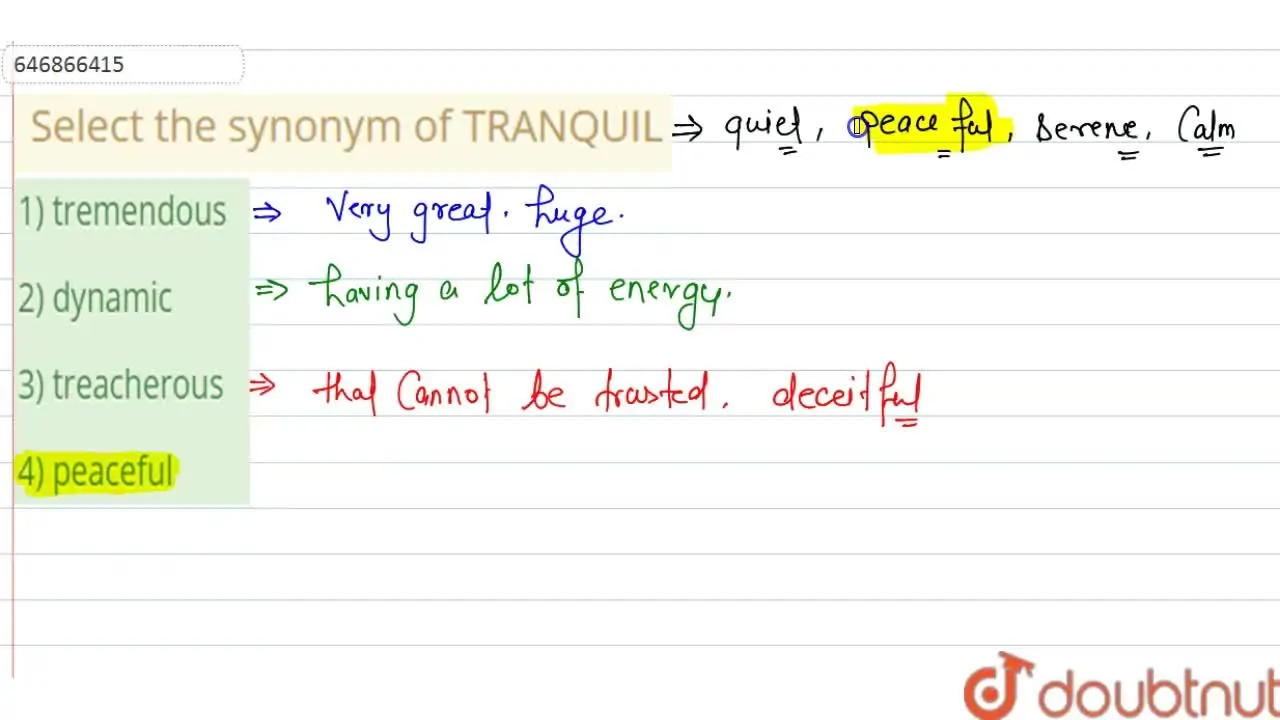 646866415
Select the synonym of TRANQUIL ⇒ quiet, peaceful, serene, Calm
1) tremendous ⇒ Very great. huge.
2) dynamic ⇒ having a lot of energy.
3) treacherous ⇒ that Cannot be trusted. deceitful
4) peaceful
doubtnut